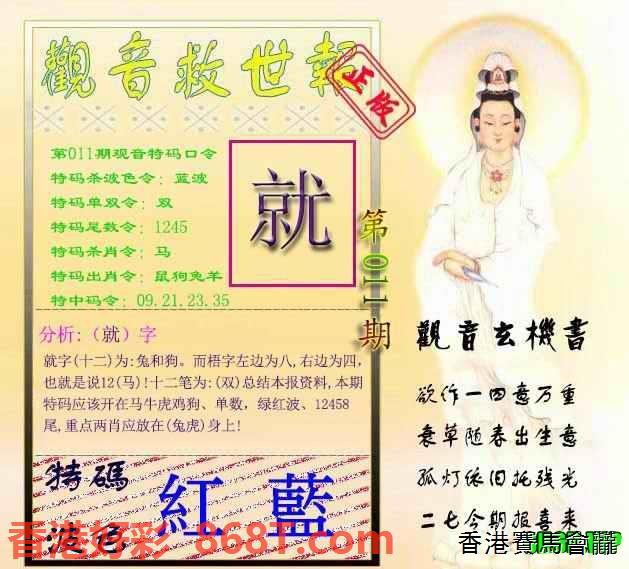 觀音救世報
正版
第011期观音特码口令
特码杀波色令：蓝波
特码单双令：双
特码尾数令：1245
特码杀肖令：马
特码出肖令：鼠狗兔羊
特中码令：09.21.23.35
就
第011期
分析:（就）字
就字(十二)为:兔和狗。而梧字左边为八,右边为四,
也就是说12(马)!十二笔为:(双)总结本报资料,本期
特码应该开在马牛虎鸡狗、单数，绿红波、12458
尾,重点两肖应放在(兔虎)身上!
特碼
波色
紅 藍
觀音玄機書
欲作一四意万重
衰草随春出生意
孤灯依旧托残光
二七今期报喜来
香港好彩 868T.com
香港賽馬會